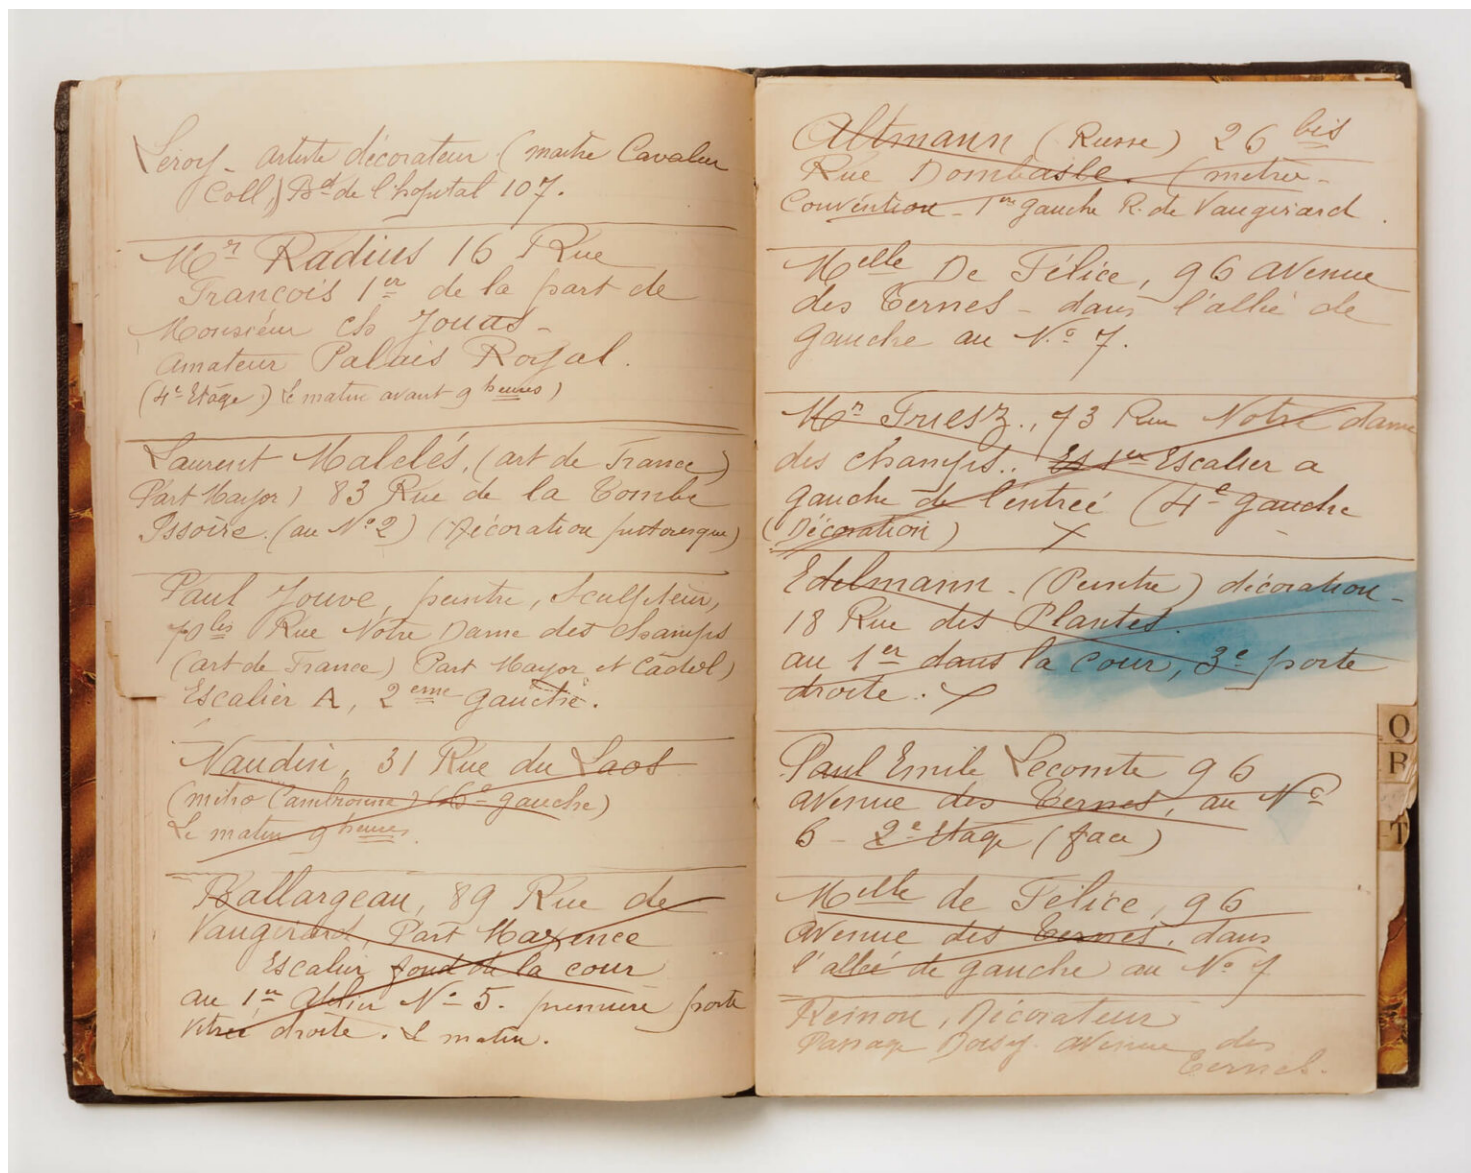 Leroy - artiste décorateur (maitre Cavalier
Coll,) Bd de l'hopital 107.
Mr Radius 16 Rue
François 1er de la part de
Monsieur ch Jouas -
amateur Palais Royal.
(4e Etage) Le matin avant 9 heures)
Laurent Malclés, (art de France)
Part Mayor) 83 Rue de la Tombe
Issoire. (au No 2) (Décoration pittoresque)
Paul Jouve, peintre, Sculpteur,
70 bis Rue Notre Dame des champs
(art de France) Part Mayor et Cadel)
Escalier A, 2eme gauche.
Naudin, 31 Rue du Laos
(métro Cambronne) (6e gauche)
Le matin 9 heures.
Ballargeau, 89 Rue de
Vaugirard, Part Maxence
Escalier fond de la cour
au 1er Atelier No 5. première porte
vitreé droite. Le matin.
Altmann (Russe) 26 bis
Rue Dombasle. (métro -
Convention - 1re gauche R. de Vaugirard.
Melle De Félice, 96 avenue
des Ternes - dans l'allée de
gauche au No 7.
Mr Friesz., 73 Rue Notre dame
des champs.. 1er Escalier a
gauche de l'entreé (4e gauche
(Décoration) X
Edelmann. (Peintre) décoration -
18 Rue des Plantes.
au 1er dans la cour, 3e porte
droite. X
Paul Emile Lecomte 96
avenue des Ternes, au No
6 - 2e Etage (face)
Melle de Félice, 96
avenue des Ternes. dans
l'allée de gauche au No 7
Reinou, Décorateur
Passage Doisy avenue des
Ternes.
Q
R
T